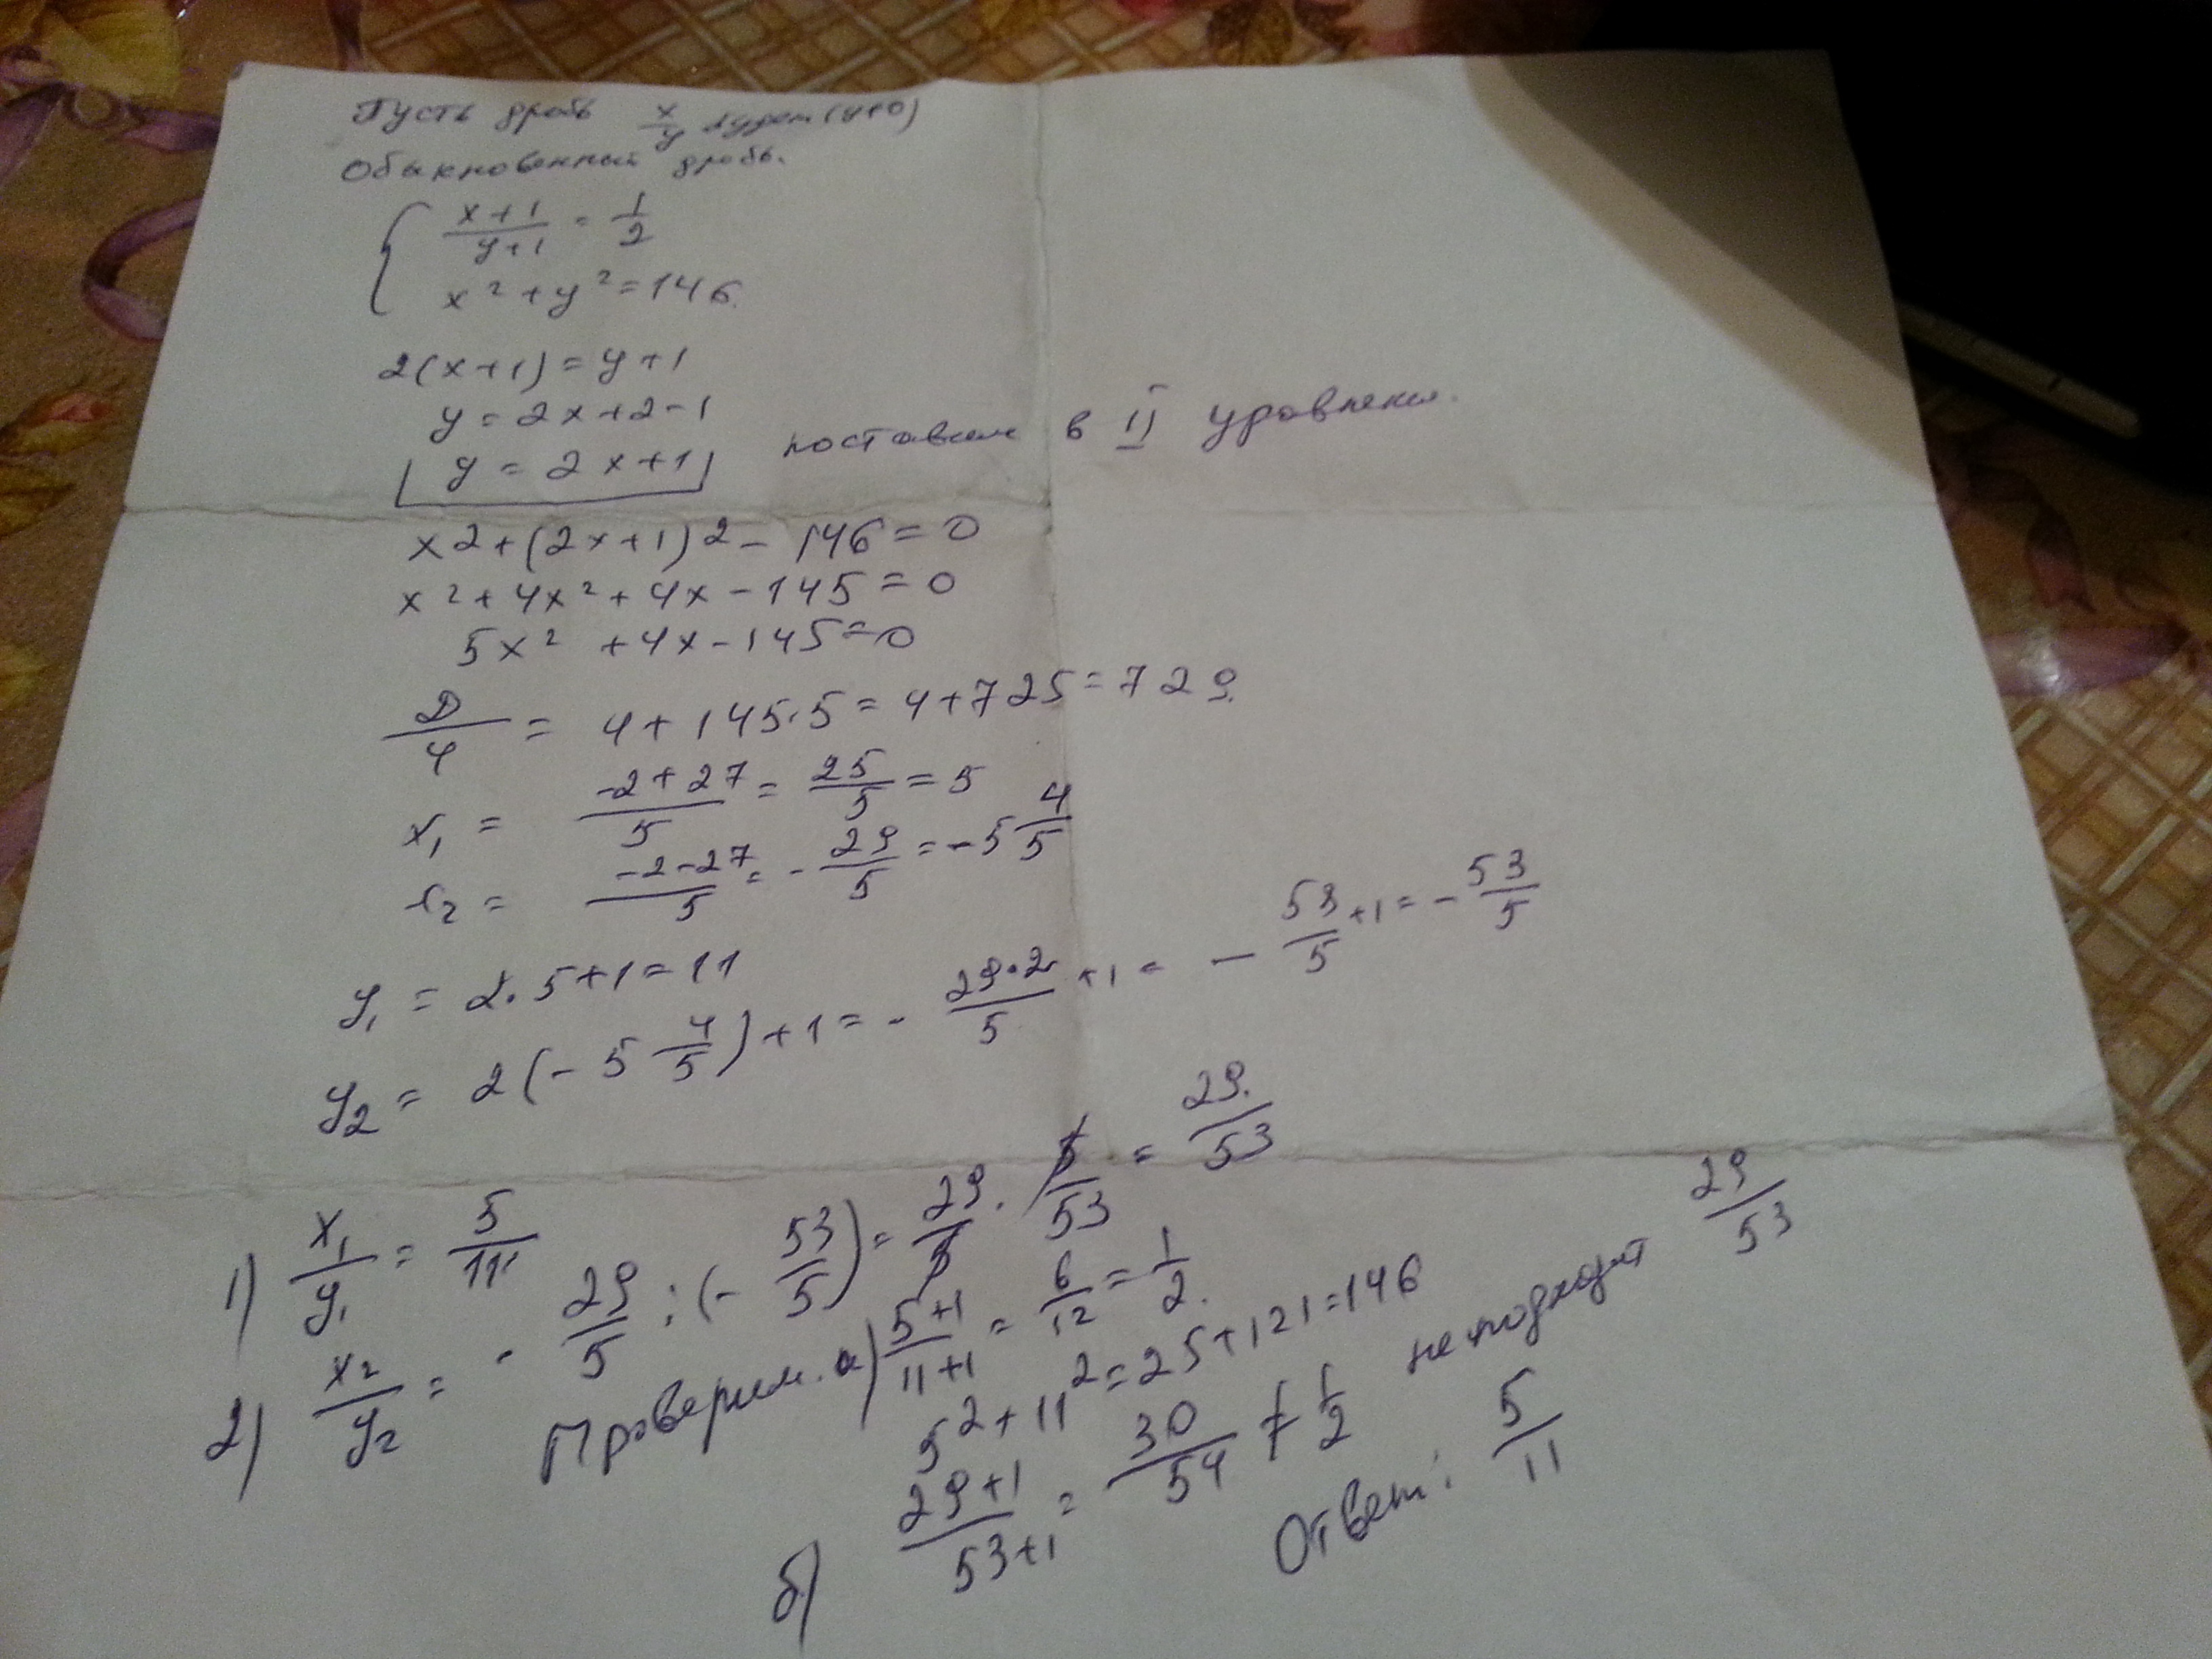 Пусть дробь x/y будет (y≠0)
Обыкновенный дробь.
{ (x+1)/(y+1) = 1/2
x² + y² = 146.
2(x+1) = y+1
y = 2x+2-1
y = 2x+1 поставим в II уровнени.
x2+(2x+1)2 - 146 = 0
x² + 4x² + 4x - 145 = 0
5x² + 4x - 145 = 0
D/4 = 4 + 145·5 = 4 + 725 = 729.
x₁ = (-2+27)/5 = 25/5 = 5
x₂ = (-2-27)/5 = - 29/5 = -5 4/5
y₁ = 2·5+1 = 11
y₂ = 2(-5 4/5)+1 = - (29·2)/5 + 1 = - 53/5 + 1 = - 53/5
1) x₁/y₁ = 5/11
2) x₂/y₂ = - 29/5 : (- 53/5) = 29/5 · 5/53 = 29/53
Проверим. а) (5+1)/(11+1) = 6/12 = 1/2.
5² + 11² = 25 + 121 = 146
б) (29+1)/(53+1) = 30/54 ≠ 1/2 не подходит 29/53
Ответ: 5/11